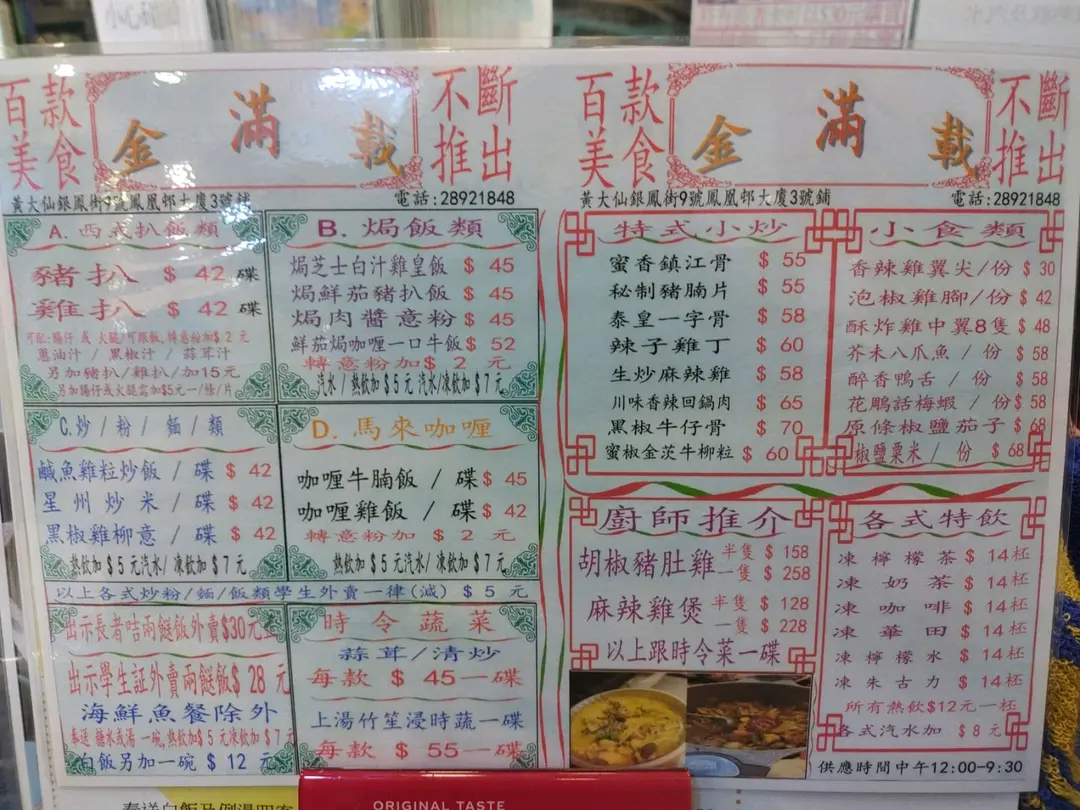 百款美食
金滿載
不斷推出
黃大仙銀鳳街9號鳳凰邨大廈3號舖
電話:28921848
A. 西式扒飯類
豬扒 $ 42 碟
雞扒 $ 42 碟
可配:腸仔 或 火腿/可跟飯,轉意粉加$ 2 元
蔥油汁 / 黑椒汁 / 蒜茸汁
另加豬扒/雞扒/加15元
另加腸仔或火腿需加$5元一/條/片
B. 焗飯類
焗芝士白汁雞皇飯 $ 45
焗鮮茄豬扒飯 $ 45
焗肉醬意粉 $ 45
鮮茄焗咖喱一口牛飯 $ 52
轉意粉加 $ 2 元
汽水 / 熱飲加 $ 5 元 汽水/凍飲加 $ 7 元
C.炒/粉/麵/類
鹹魚雞粒炒飯 / 碟 $ 42
星州炒米 / 碟 $ 42
黑椒雞柳意 / 碟 $ 42
熱飲加 $ 5 元汽水/ 凍飲加 $ 7 元
D. 馬來咖喱
咖喱牛腩飯 / 碟 $ 45
咖喱雞飯 / 碟 $ 42
轉意粉加 $ 2 元
熱飲加 $ 5 元汽水/ 凍飲加 $ 7 元
以上各式炒粉/麵/飯類學生外賣一律(減) $ 5 元
出示長者咭兩餸飯外賣$30元
出示學生証外賣兩餸飯$ 28 元
海鮮魚餐除外
奉送 糖水或湯 一碗,熱飲加$ 5 元凍飲加 $ 7
白飯另加一碗 $ 12 元
時令蔬菜
蒜茸/清炒
每款 $ 45一碟
上湯竹笙浸時蔬一碟
每款 $ 55一碟
ORIGINAL TASTE
百款美食
金滿載
不斷推出
黃大仙銀鳳街9號鳳凰邨大廈3號舖
電話:28921848
特式小炒
蜜香鎮江骨 $ 55
秘制豬腩片 $ 55
泰皇一字骨 $ 58
辣子雞丁 $ 60
生炒麻辣雞 $ 58
川味香辣回鍋肉 $ 65
黑椒牛仔骨 $ 70
蜜椒金茨牛柳粒 $ 60
小食類
香辣雞翼尖/份 $ 30
泡椒雞腳/份 $ 42
酥炸雞中翼8隻 $ 48
芥末八爪魚 / 份 $ 58
醉香鴨舌 / 份 $ 58
花鵰話梅蝦 / 份 $ 58
原條椒鹽茄子 $ 68
椒鹽粟米 / 份 $ 68
廚師推介
胡椒豬肚雞 半隻 $ 158
一隻 $ 258
麻辣雞煲 半隻 $ 128
一隻 $ 228
以上跟時令菜一碟
各式特飲
凍檸檬茶 $ 14 柸
凍奶茶 $ 14 柸
凍咖啡 $ 14 柸
凍華田 $ 14 柸
凍檸檬水 $ 14 柸
凍朱古力 $ 14 柸
所有熱飲$12元一柸
各式汽水加 $ 8 元
供應時間中午12:00-9:30